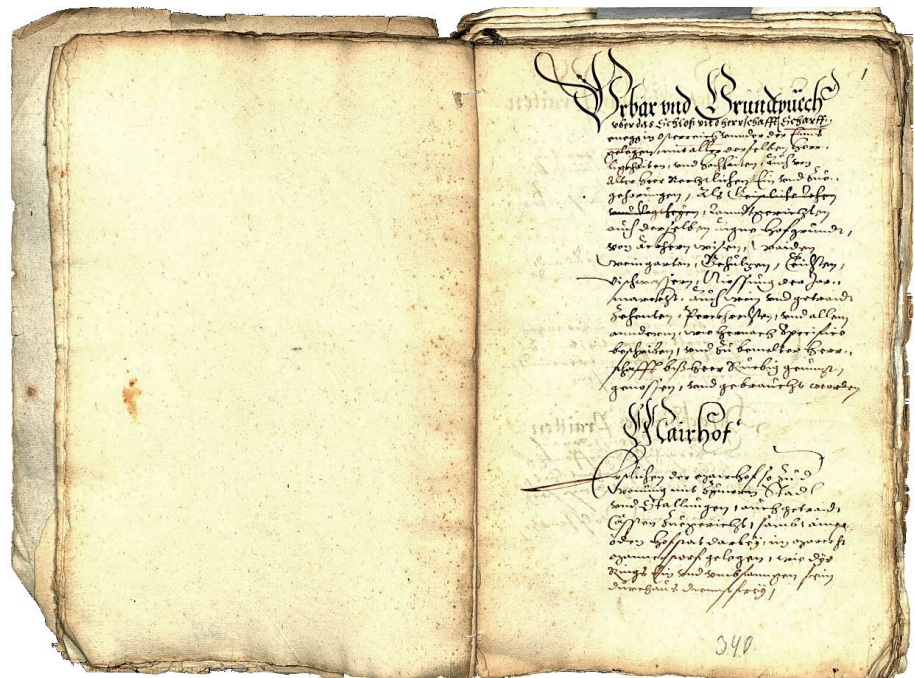 1
Vrbar vnd Grundtpuech
vber das Schloß vnd herrschafft Scharff-
enegg in Osterreich vnnder der Enns
gelegen, mit aller derselben Herr-
ligkhaiten, vnd hochhaiten, auch von
alter heer Rechtlichen Ein vnd Zue-
gehörungen, Als Geistliche Lehen
vnnd Vogtheyen, Landtgerichten
auch derselben aigne Hofgründt,
von äckhern, wisen, waiden
weingarten, Gehülzen, Teichten,
vischwassern, Niessung der Jar-
marckht, auch wein vnd getraidt
Zehenten, Perckhrechten, vnd allem
anndern, wie hernach Specifice
beschriben, vnd zu bemelter Herr-
schafft biß heer Ruebig genuzt,
genossen, vnd gebraucht worden
Mairhof
Erstlichen der Mairhof so zu d
wonung mit Zimern Stadl
vnd Stallungen, auch getraidt
Cässten Zuegericht, sambt ainer
öden hofstat darbey, im Marckht
Mannerstorf gelegen, wie die
Rings Ein vnd vmbfanngen sein
durchaus dienstfrey,
340